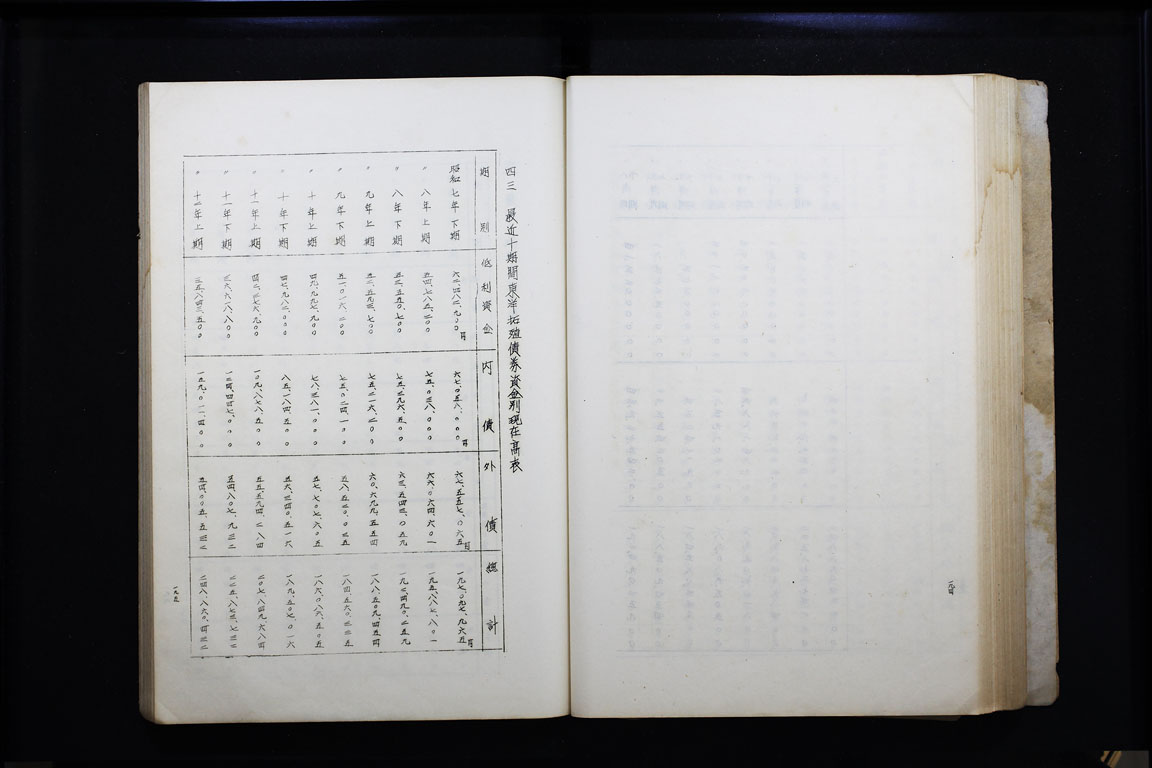 一九四
四三 最近十期間東洋拓殖債券資金別現在高表
期別 低利資金 内債 外債 総計
昭和七年下期 六二、四八二、九〇〇円 六七、〇五八、〇〇〇円 六七、五五七、〇六五円 一九七、〇九七、九六五円
〃 八年上期 五四、七八五、二〇〇 七五、〇三八、〇〇〇 六六、〇六四、六〇一 一九五、八八七、八〇一
〃 八年下期 五三、五五〇、七〇〇 七五、三九六、五〇〇 六三、五四三、〇五九 一九二、四九〇、二五九
〃 九年上期 五二、五九三、七〇〇 七五、二一六、二〇〇 六〇、六九九、五五四 一八八、五〇九、四五四
〃 九年下期 五一、〇一六、二〇〇 七五、〇二四、一〇〇 五八、五二〇、〇三五 一八四、五六〇、三三五
〃 十年上期 四九、九九七、九〇〇 七八、三八一、〇〇〇 五七、七〇七、六〇五 一八六、〇八六、五〇五
〃 十年下期 四七、九八二、〇〇〇 八五、一八四、五〇〇 五六、三四〇、五一六 一八九、五〇七、〇一六
〃 十一年上期 四二、三七六、九〇〇 一〇九、八七八、五〇〇 五五、五九四、二八四 二〇七、八四九、六八四
〃 十一年下期 三六、六一八、八〇〇 一三四、四四七、〇〇〇 五四、八〇七、九三二 二二五、八七三、七三二
〃 十二年上期 三五、八四三、五〇〇 一五九、〇一一、四〇〇 五四、〇〇五、五三二 二四八、八六〇、四三二
一九五